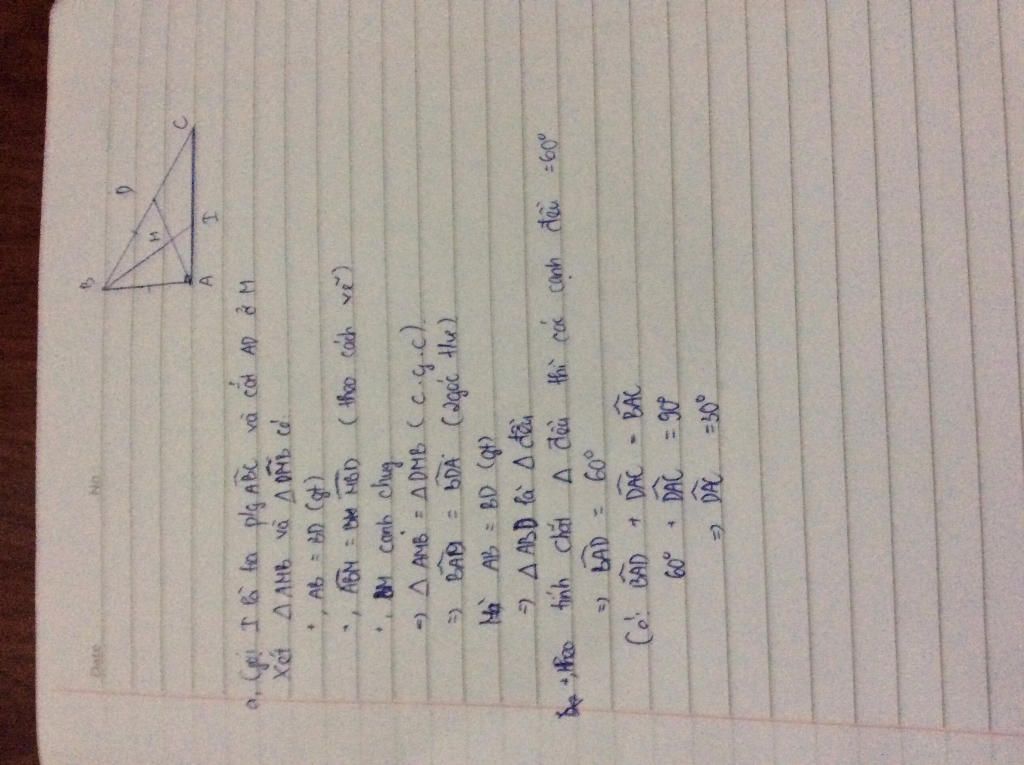 Date NO
B
D
M
C
A
I
a, Gọi I là tia p/g ABC và cắt AD ở M
Xét △ AMB và △ DMB có
+, AB = BD (gt)
+, ABM = MBD (theo cách vẽ)
+, BM cạnh chug
=> △ AMB = △ DMB (c.g.c)
=> BAD = BDA (2góc tư)
Mà AB = BD (gt)
=> △ ABD là △ đều
+, theo tính chất △ đều thì các cạnh đều = 60°
=> BAD = 60°
Có: BAD + DAC = BAC
60° + DAC = 90°
=> DAC = 30°